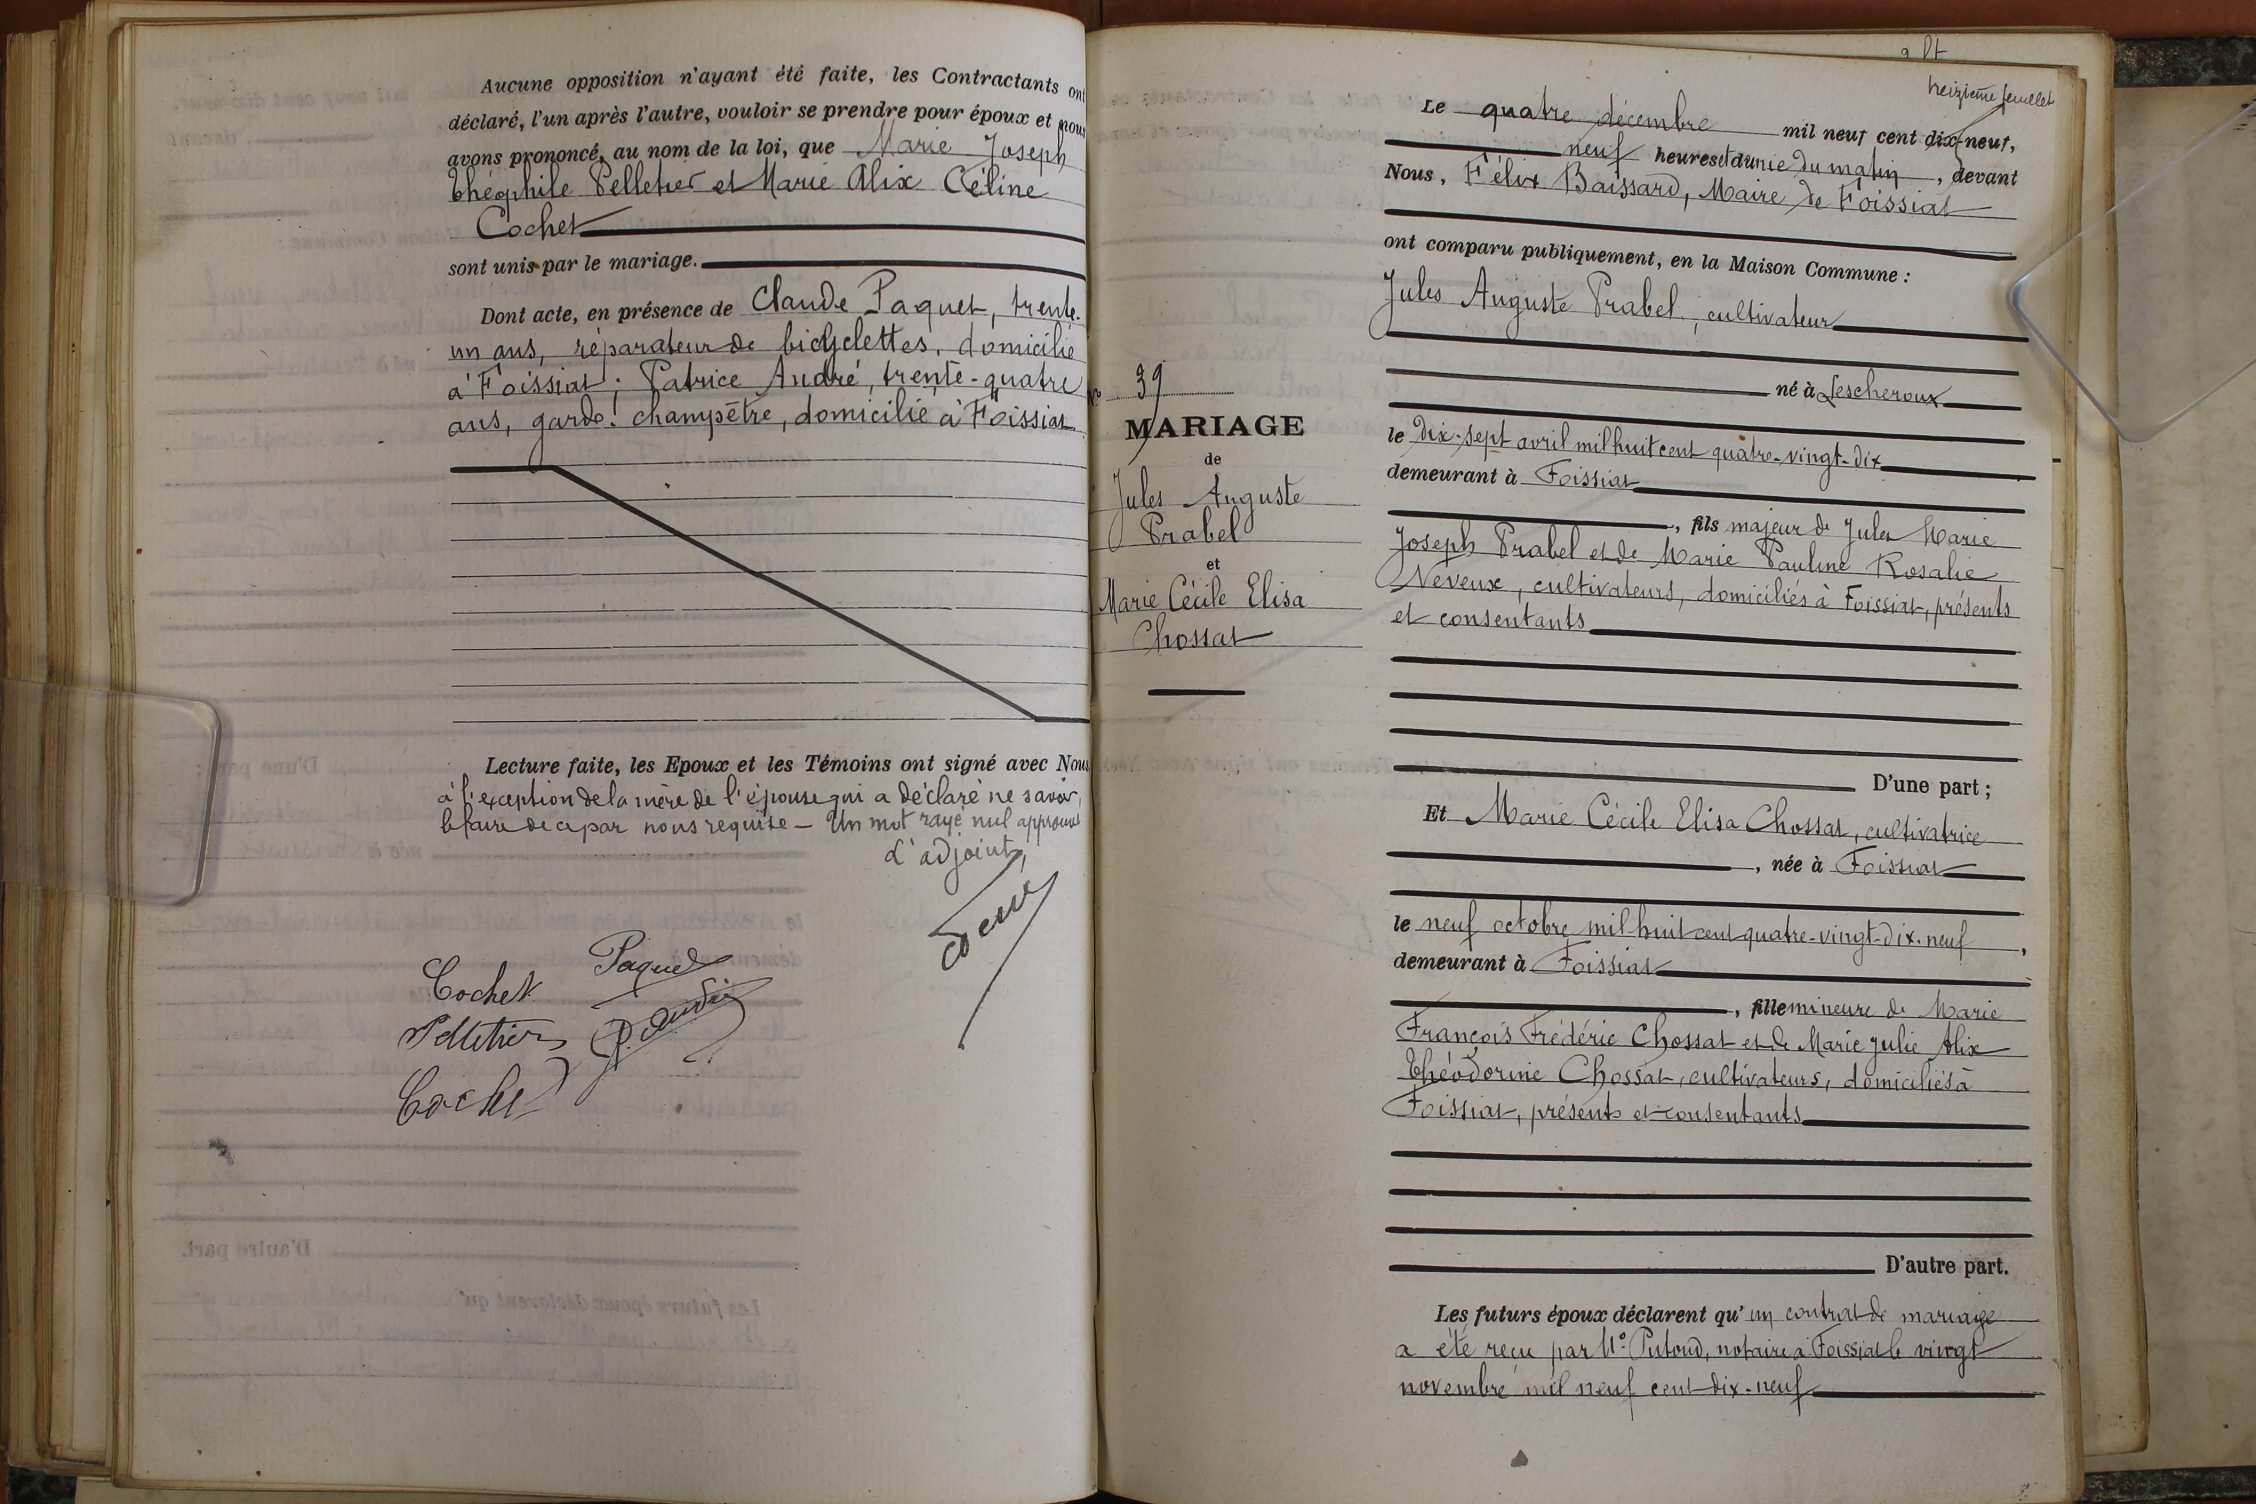 Aucune opposition n'ayant été faite, les Contractants ont
déclaré, l'un après l'autre, vouloir se prendre pour époux et nous
avons prononcé, au nom de la loi, que Marie Joseph
Théophile Pelletier et Marie Alix Céline
Cochet
sont unis par le mariage.
Dont acte, en présence de Claude Paquet, trente-
un ans, réparateur de bicyclettes, domicilié
à Foissiat; Patrice André, trente-quatre
ans, garde champêtre, domicilié à Foissiat
Lecture faite, les Epoux et les Témoins ont signé avec Nous
à l'exception de la mère de l'épouse qui a déclaré ne savoir
le faire de ce par nous requise - Un mot rayé nul approuvé
L'adjoint,
Cochet Paquet
Pelletier
Cochet
treizième feuillet
Le quatre décembre mil neuf cent dix-neuf,
neuf heures et dumie du matin, devant
Nous, Félix Baissard, Maire de Foissiat
ont comparu publiquement, en la Maison Commune :
Jules Auguste Prabel, cultivateur
né à Lescheroux
le dix-sept avril mil huit cent quatre-vingt-dix
demeurant à Foissiat
, fils majeur de Jules Marie
Joseph Prabel et de Marie Pauline Rosalie
Neveux, cultivateurs, domiciliés à Foissiat, présents
et consentants
D'une part ;
Et Marie Cécile Elisa Chossat, cultivatrice
, née à Foissiat
le neuf octobre mil huit cent quatre-vingt-dix-neuf,
demeurant à Foissiat
, fille mineure de Marie
François Frédéric Chossat et de Marie Julie Alix
Théodorine Chossat, cultivateurs, domiciliés à
Foissiat, présents et consentants
D'autre part.
Les futurs époux déclarent qu'un contrat de mariage
a été reçu par Me Putoud, notaire à Foissiat le vingt
novembre mil neuf cent dix-neuf
No 39
MARIAGE
de
Jules Auguste
Prabel
et
Marie Cécile Elisa
Chossat